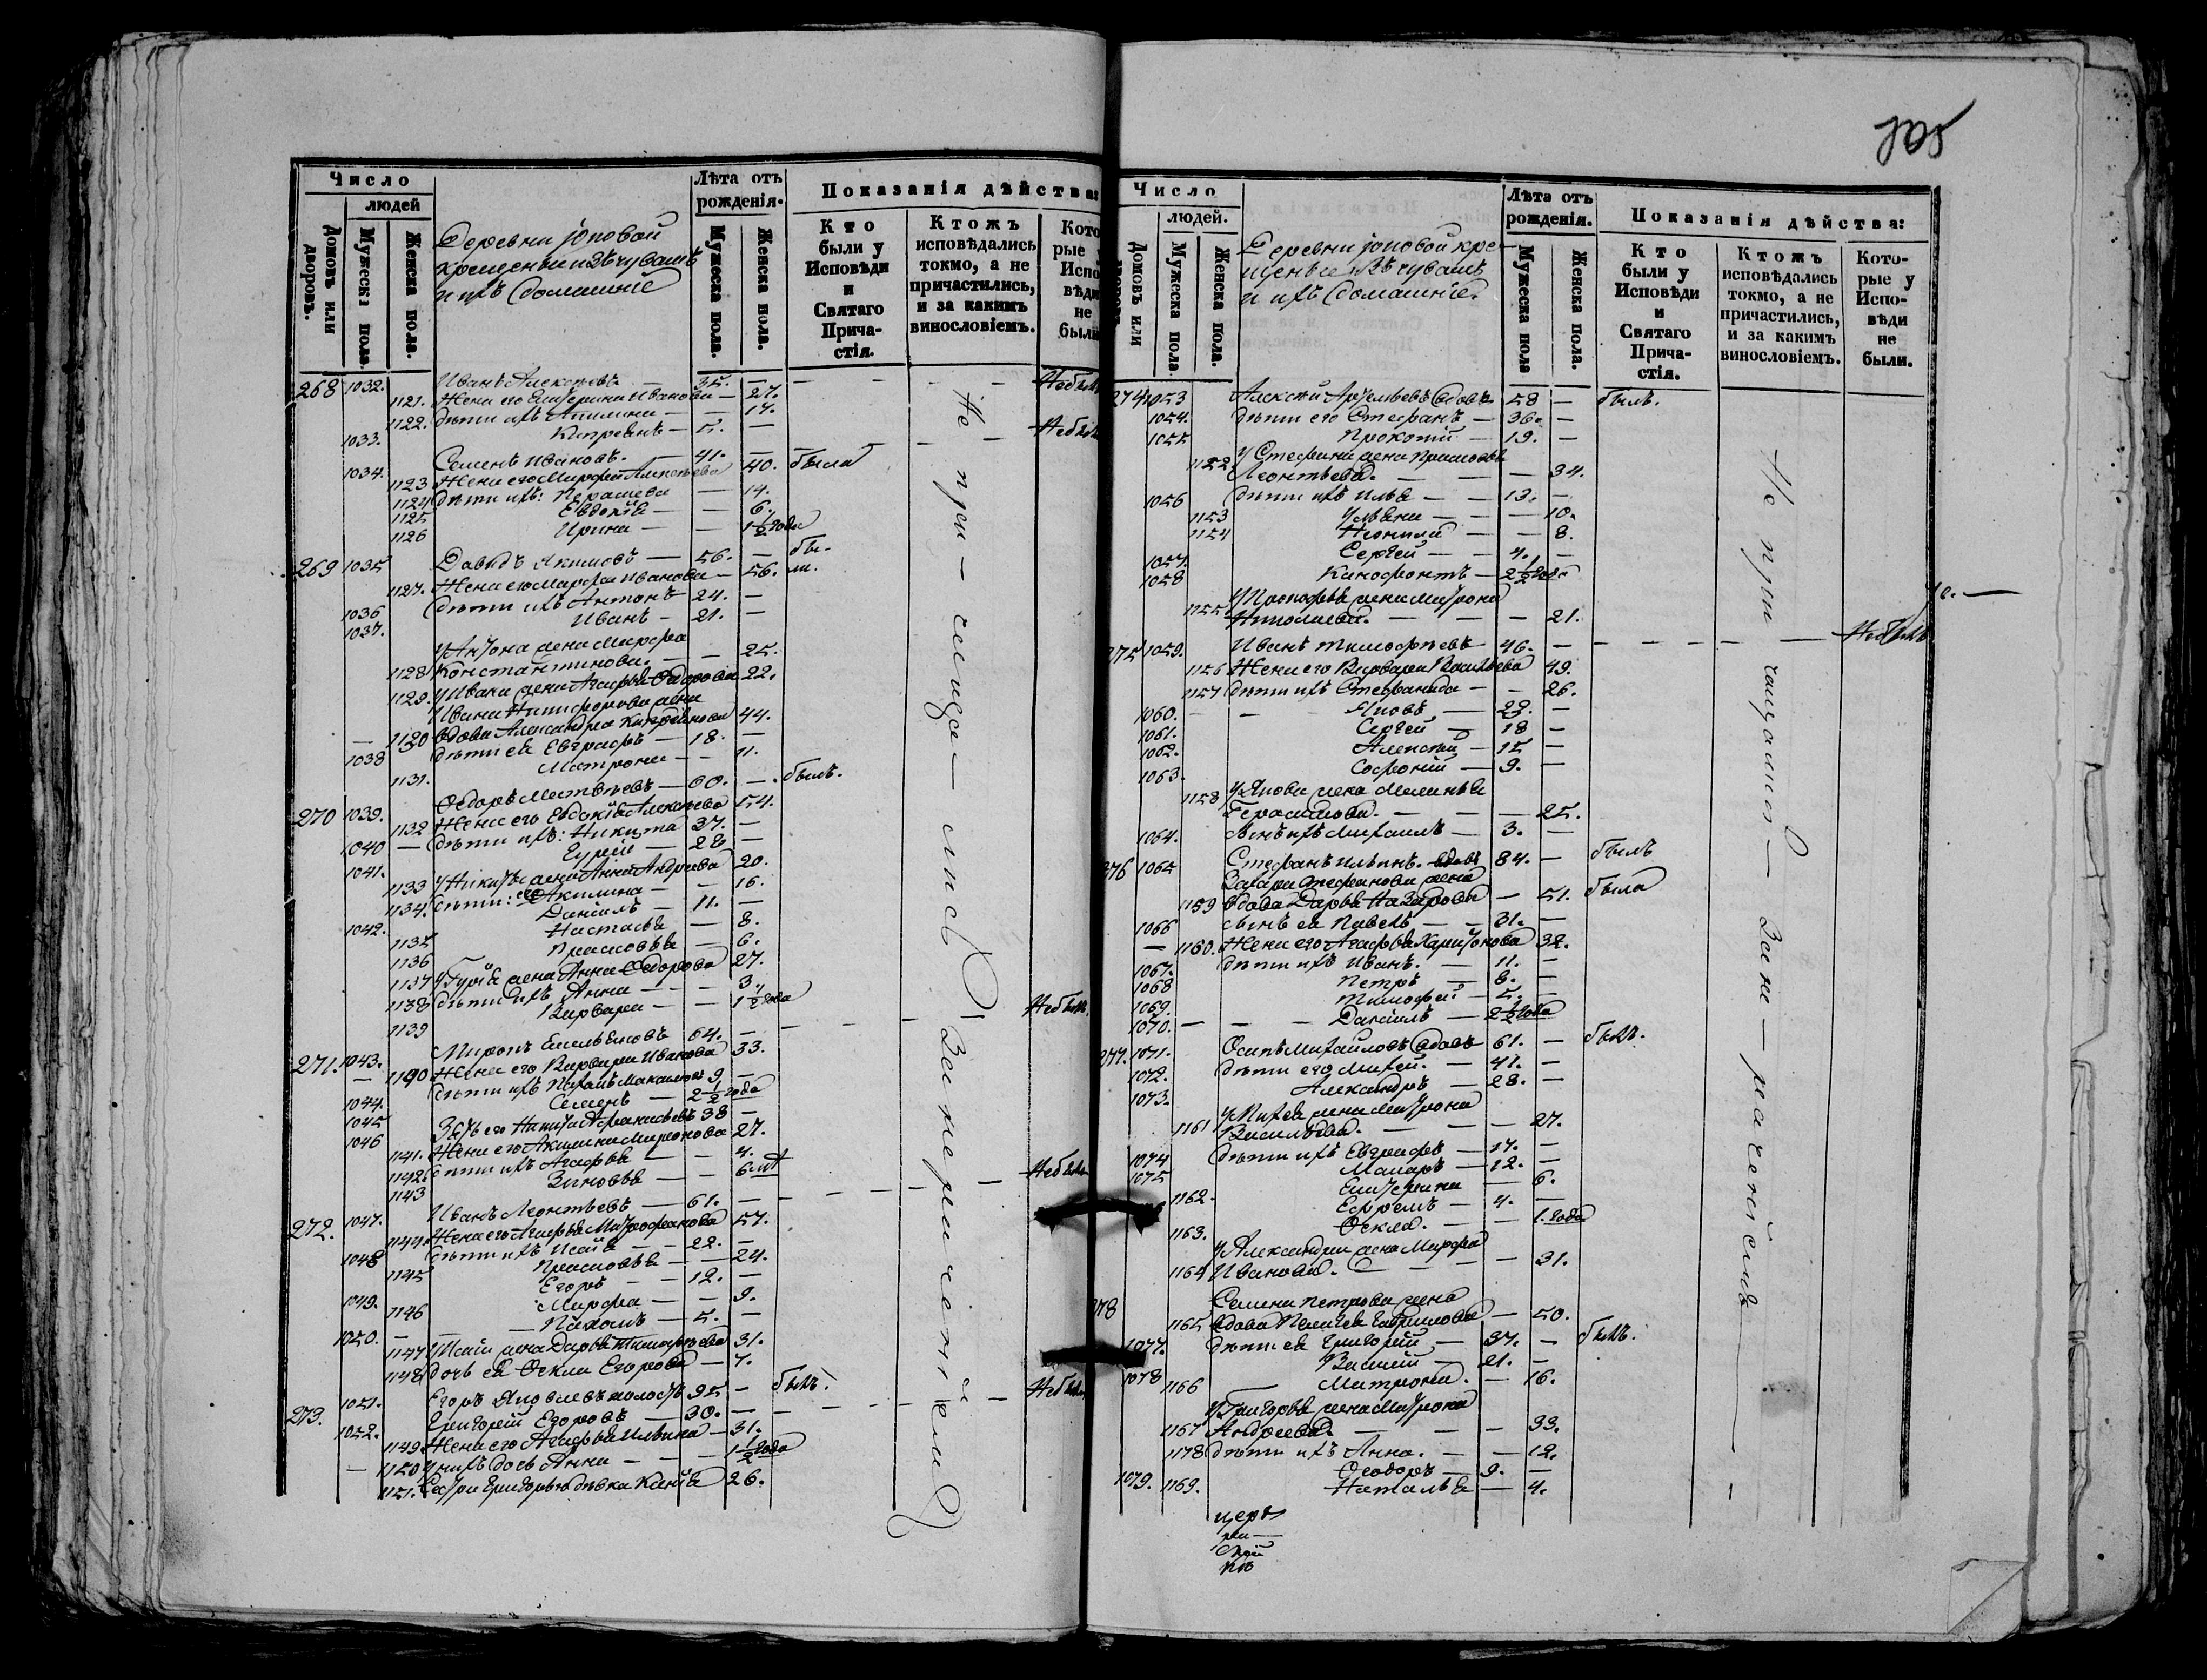 105
Число
людей
Домовъ или дворовъ.
Мужеска пола.
Женска пола.
Деревни Іоповой
крещеные изъ чувашъ
и ихъ домашніе
Лѣта отъ рожденія.
Мужеска пола.
Женска пола.
Показанія дѣйства:
Кто были у Исповѣди и Святаго Причастія.
Ктожъ исповѣдались токмо, а не причастились, и за какимъ винословіемъ.
Кото
рые у
Испо
вѣди
не
были
268 1032. Иванъ Алексѣевъ — 35. — Небылъ
1121. Жена его Екатерина Иванова — 27.
1122. дѣти ихъ Акилина — 14.
1033. Кипреянъ — 5. — Небылъ
1034. Семенъ Ивановъ. — 41. —
1123 Жена его Марфа Алексѣева 40. была
1124 дѣти ихъ: Перасцева — 14.
1125 Евдокія — 6.
1126 Ирина — 1 1/2 года
269 1035 Давыдъ Акимовъ — 56. — бы-
1127. Жена его Марфа Иванова — 56. ли.
1036 дѣти ихъ Антонъ 24. —
1037. Иванъ — 21. —
У Антона жена Марфа
1128 Константинова. — 25.
1129. У Ивана жена Агафья Ѳедорова 22.
Ивана Никифорова жена
1130 вдова Александра Кипреянова 44.
1038 дѣти ея Евграфъ — 18. —
1131. Матрона — 11.
270 1039. Ѳедоръ Матвѣевъ — 60. — былъ.
1132 Жена его Евдокія Алексѣева 54.
1040 — дѣти ихъ: Никита 37. —
1041. Гурій — 28 —
1133 У Никиты жена Анна Андреева 20.
1134. дѣти: Акилина — 16.
1042. Даніилъ — 11. —
1135 Настасья — 8.
1136 Прасковья — 6.
1137 У Гурія жена Анна Ѳедорова 27.
1138 дѣти ихъ Анна — 3.
1139 Варвара — 1 1/2 года
271. 1043. Миронъ Емельяновъ 64. — Небылъ
— 1190 Жена его Варвара Иванова 33.
1044. дѣти ихъ 9 —
1045 Семенъ — 2 1/2 года
1046 Зять его Никита Афанасьевъ 38 —
1141. Жена его Акилина Миронова 27.
1142. дѣти ихъ Агафья — 4.
1143 Зиновья — 6 лѣт
272. 1047. Иванъ Леонтьевъ — 61. — Небылъ
1144. Жена его Агафья Митрофанова 57.
1048 дѣти ихъ Исаія — 22. —
1145 Прасковья — 24.
1049. Егоръ — 12. —
1146 Марфа — 9.
1050. Пахомъ — 5. —
1147 У Исаіи жена Дарья Тимофеева 31.
1148 дочь ея Ѳекла Егорова — 7.
273. 1051. Егоръ Яковлевъ холостъ 95 — былъ.
1052. Григорій Егоровъ — 30. — Небылъ
1149. Жена его Агафья Ильина — 31.
— 1150 У нихъ дочь Анна — 1 1/2 года
1151. Сестра Григорья дѣвка Ксенія 26.
Не при-чащались За нерачениемъ
Число
людей.
Домовъ или
Мужеска пола
Женска пола.
Деревни Іоповой кре-
щеные изъ чувашъ
и ихъ домашніе.
Лѣта отъ рожденія.
Мужеска пола
Женска пола.
Показанія дѣйства:
Кто были у Исповѣди и Святаго Причастія.
Ктожъ исповѣдались токмо, а не причастились, и за какимъ винословіемъ.
Которые у Исповѣди не были.
274 1053 Алексѣй Артемьевъ вдовъ 58 — былъ.
1054. дѣти его Стефанъ — 36. —
1055 Прокопій — 19. —
У Стефана жена Прасковья
1152 Леонтьева. — 34.
1056 дѣти ихъ Илья — 13. —
1153 Ульяна — 10.
1154 Неонила — 8.
1057. Сергей — 4. —
1058 Ксенофонтъ — 2 1/2 года
У Прокофья жена Матрона
1155 Николаева. — 21.
275 1059. Иванъ Тимофеевъ 46. — Небылъ
1156 Жена его Варвара Васильева 49.
1157 дѣти ихъ Стефанида — 26.
1060. Яковъ — 22. —
1061. Сергей — 18 —
1062. Алексѣй — 15 —
1063. Софроній — 9. —
1158 У Якова жена Меланья
Герасимова. — 25.
1064. сынъ ихъ Михаилъ — 3. —
276 1065 Стефанъ Ильинъ вдовъ 84. — былъ
Захара Стефанова жена
1159 вдова Дарья Назарова — 51. была
1066 сынъ ея Павелъ — 31. —
— 1160. Жена его Агафья Харитонова 32.
1067. дѣти ихъ Иванъ. — 11. —
1068 Петръ — 8. —
1069. Тимофей — 5. —
1070. Даніилъ — 2 1/2 года
277. 1071. Осипъ Михайловъ вдовъ 61. — былъ.
1072. дѣти его Михей. — 41. —
1073. Александръ — 28. —
У Михея жена Матрона
1161 Васильева. — 27.
1074 дѣти ихъ Евграфъ — 17. —
1075 Макаръ — 12. —
1162. Екатерина — 6.
Ефремъ — 4. —
1163. Ѳекла. — 1. года
У Александра жена Марфа
1164 Иванова. — 31.
278 Семена Петрова жена
1165 вдова Пелагея Гаврилова — 50.
1077. дѣти ея Григорій — 37. — былъ.
1078 Василій — 21. —
1166 Матрона. — 16.
У Григорья жена Матрона
1167 Андреева. — 33.
1178 дѣти ихъ Анна. — 12.
1079. Ѳеодоръ — 9. —
1169. Наталья — 4.
Не при чащались — За не — рачениемъ